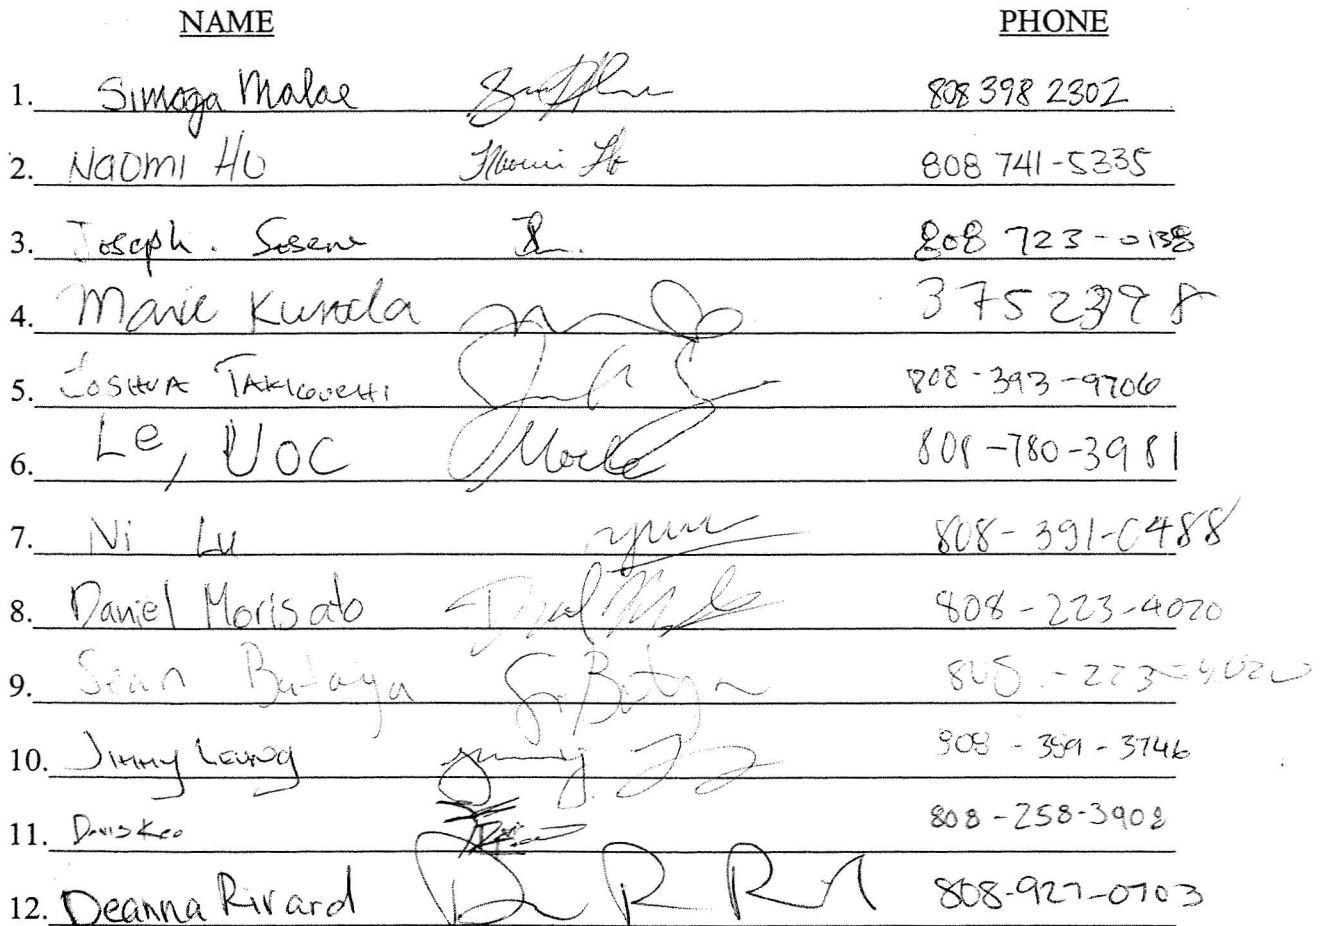 NAME PHONE
1. Simoga Malae 808 398 2302
2. Naomi Ho Naomi Ho 808 741-5335
3. Joseph. Sosene 808 723-0138
4. Marie Kuroda 3752398
5. JOSHUA TAKIGUCHI 808-393-9706
6. Le, UOC 808-780-3981
7. Ni Lu 808-391-0488
8. Daniel Morisato 808-223-4020
9. Sean Butaya
10. Jimmy Leung 808-389-3746
11. Davis Keo 808-258-3908
12. Deanna Rivard 808-927-0703